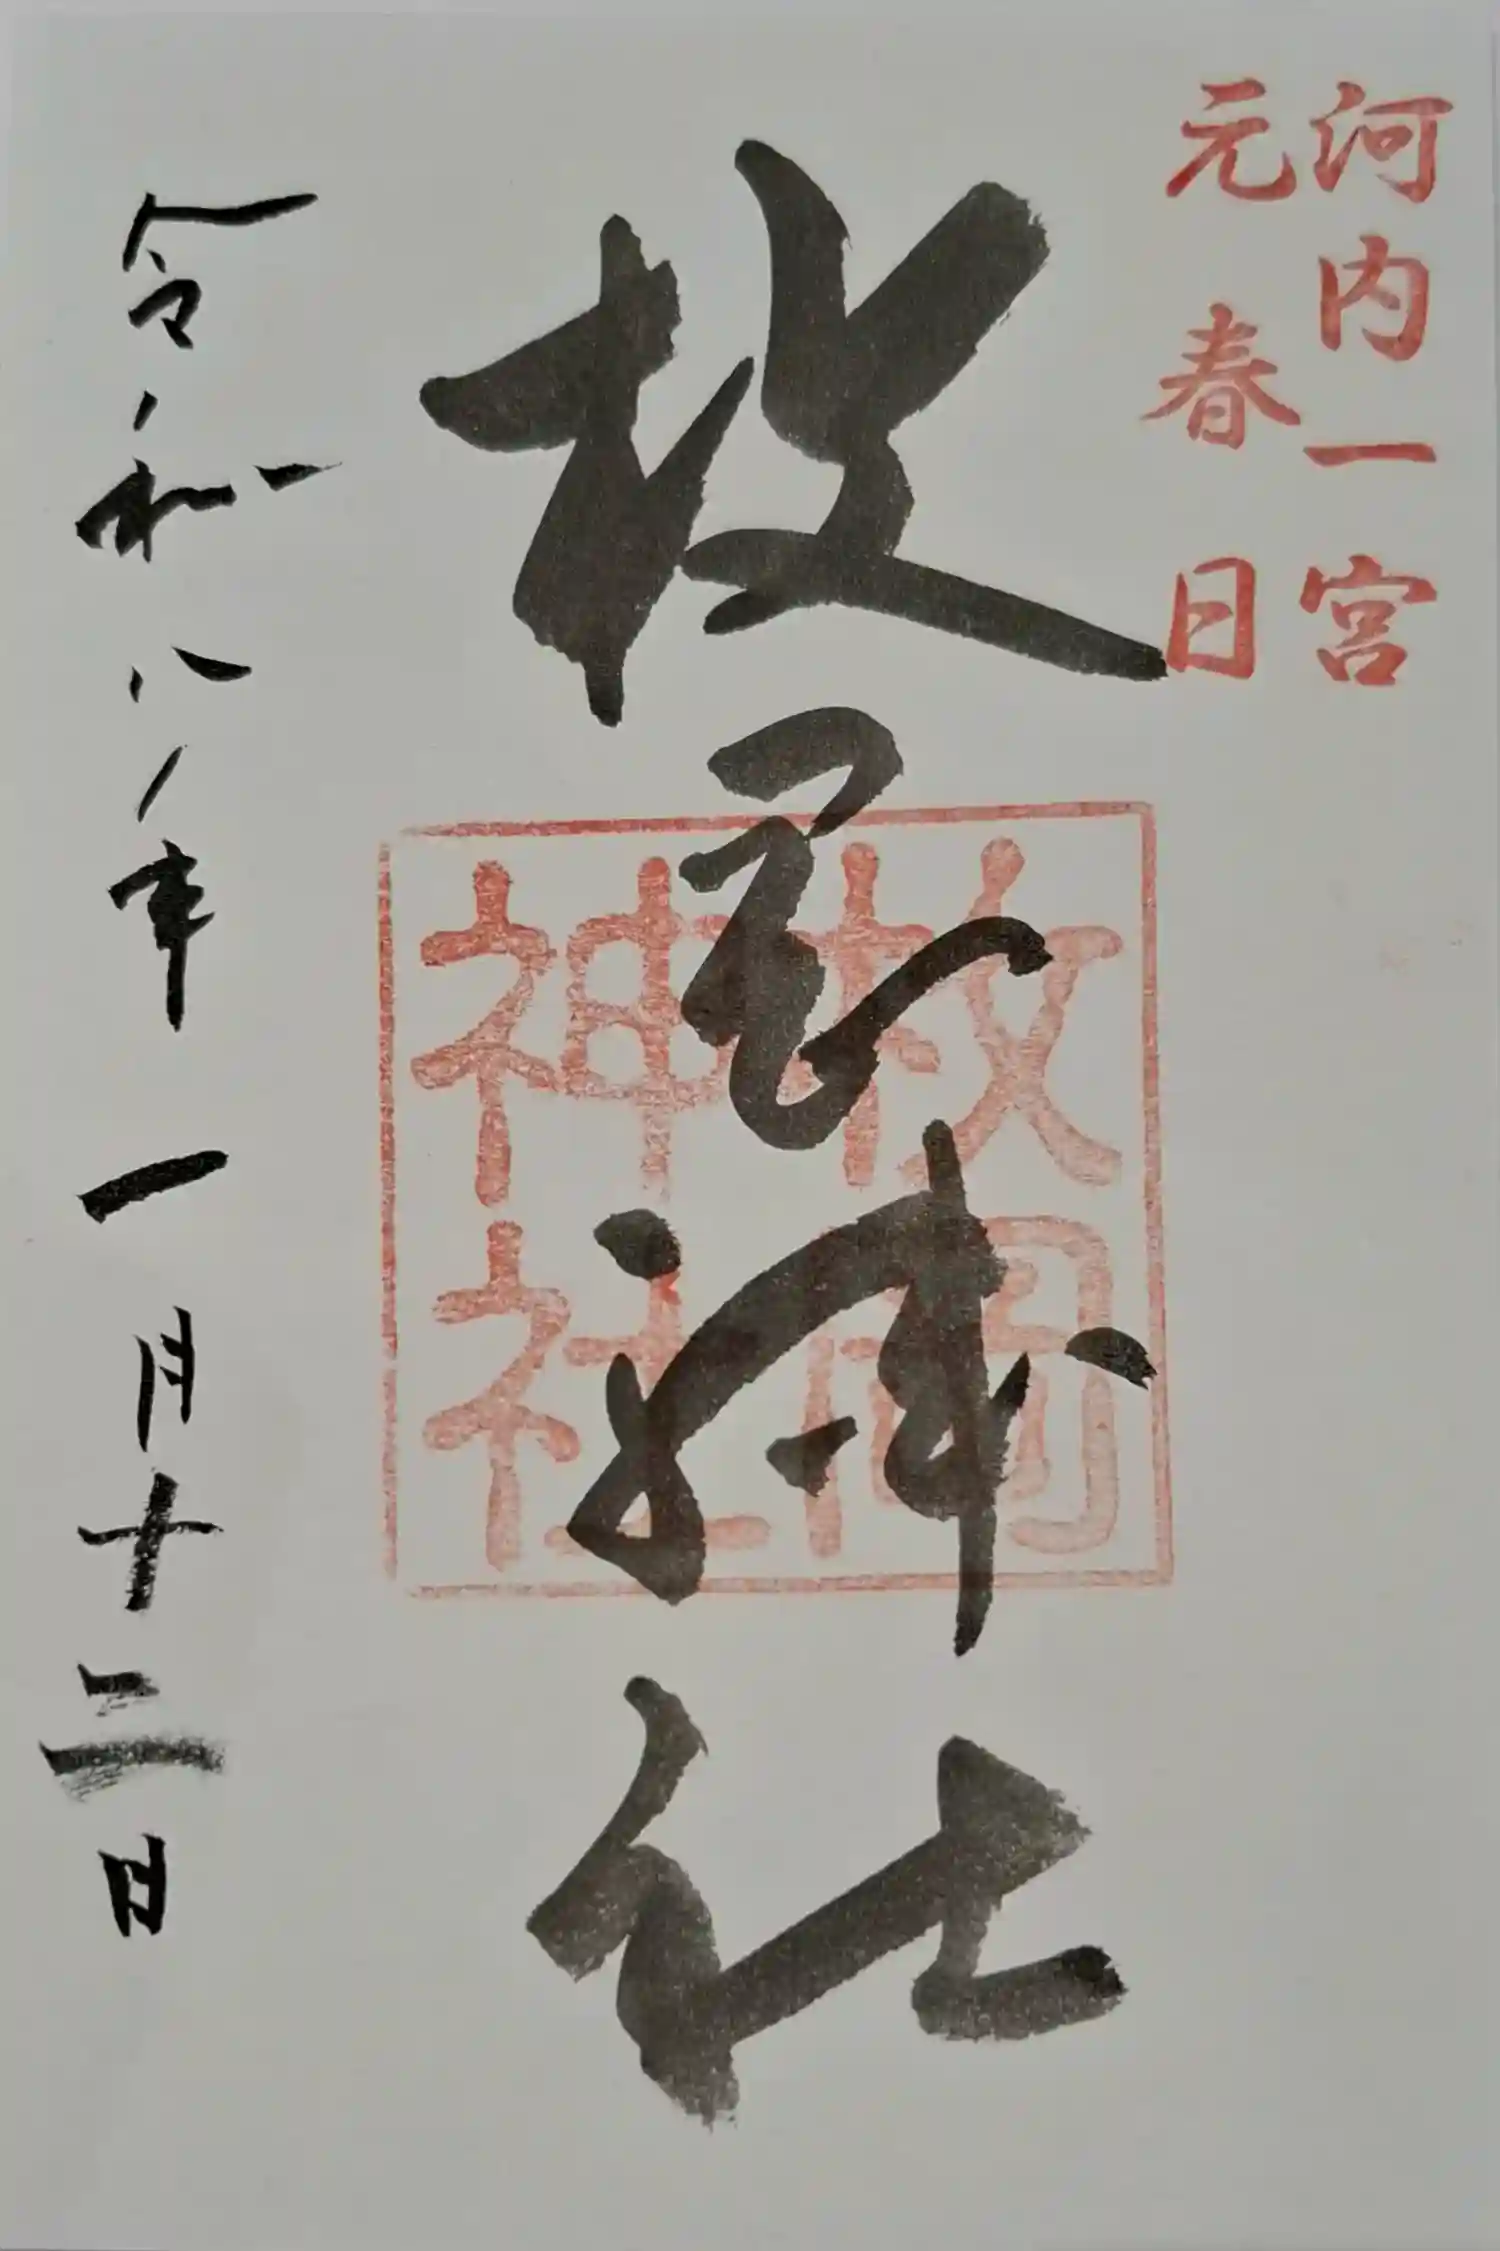 河内一宮
元春日
枚岡神社
枚岡
神社
令和八年一月十二日